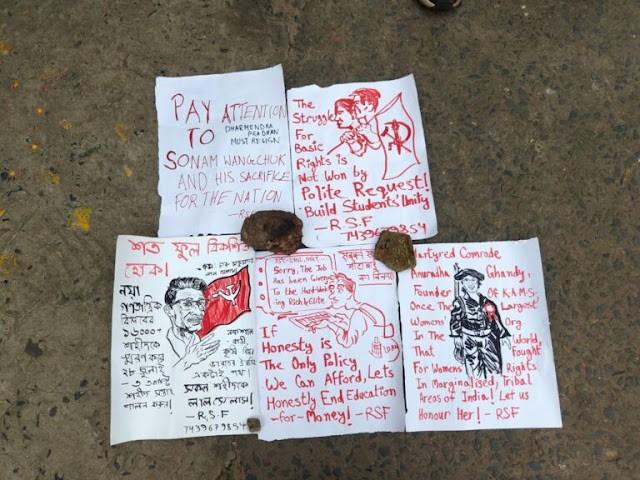 PAY ATTENTION
DHARMENDRA
PRADHAN
MUST RESIGN
TO
SONAM WANGCHUK
AND HIS SACRIFICE
FOR THE NATION
The
Struggle
For
Basic
Rights is
Not Won by
Polite Request!
Build Students' Unity
-R.S.F
7439679854
শত ফুল বিকশিত
হোক।
নয়া
গণতান্ত্রিক
বিপ্লবের
১৬০০০+
শহীদকে
স্মরণ করে
২৮ জুলাই
শহীদ সপ্তাহ
পালন করুন!
লাল সেলাম!
-R.S.F
7439679854
Sorry, The Job
Has been Given
To the Hard-Work
ing Rich & Elite
If
Honesty is
The Only Policy
We Can Afford, Lets
Honestly End Education
-for-Money! -RSF
Martyred Comrade
Anuradha Ghandy,
Founder Of K.A.M.S.
Once The Largest
Womens' Org
In The World,
That Fought
For Womens Rights
In Marginalised, Tribal
Areas of India! Let us
Honour Her! - RSF